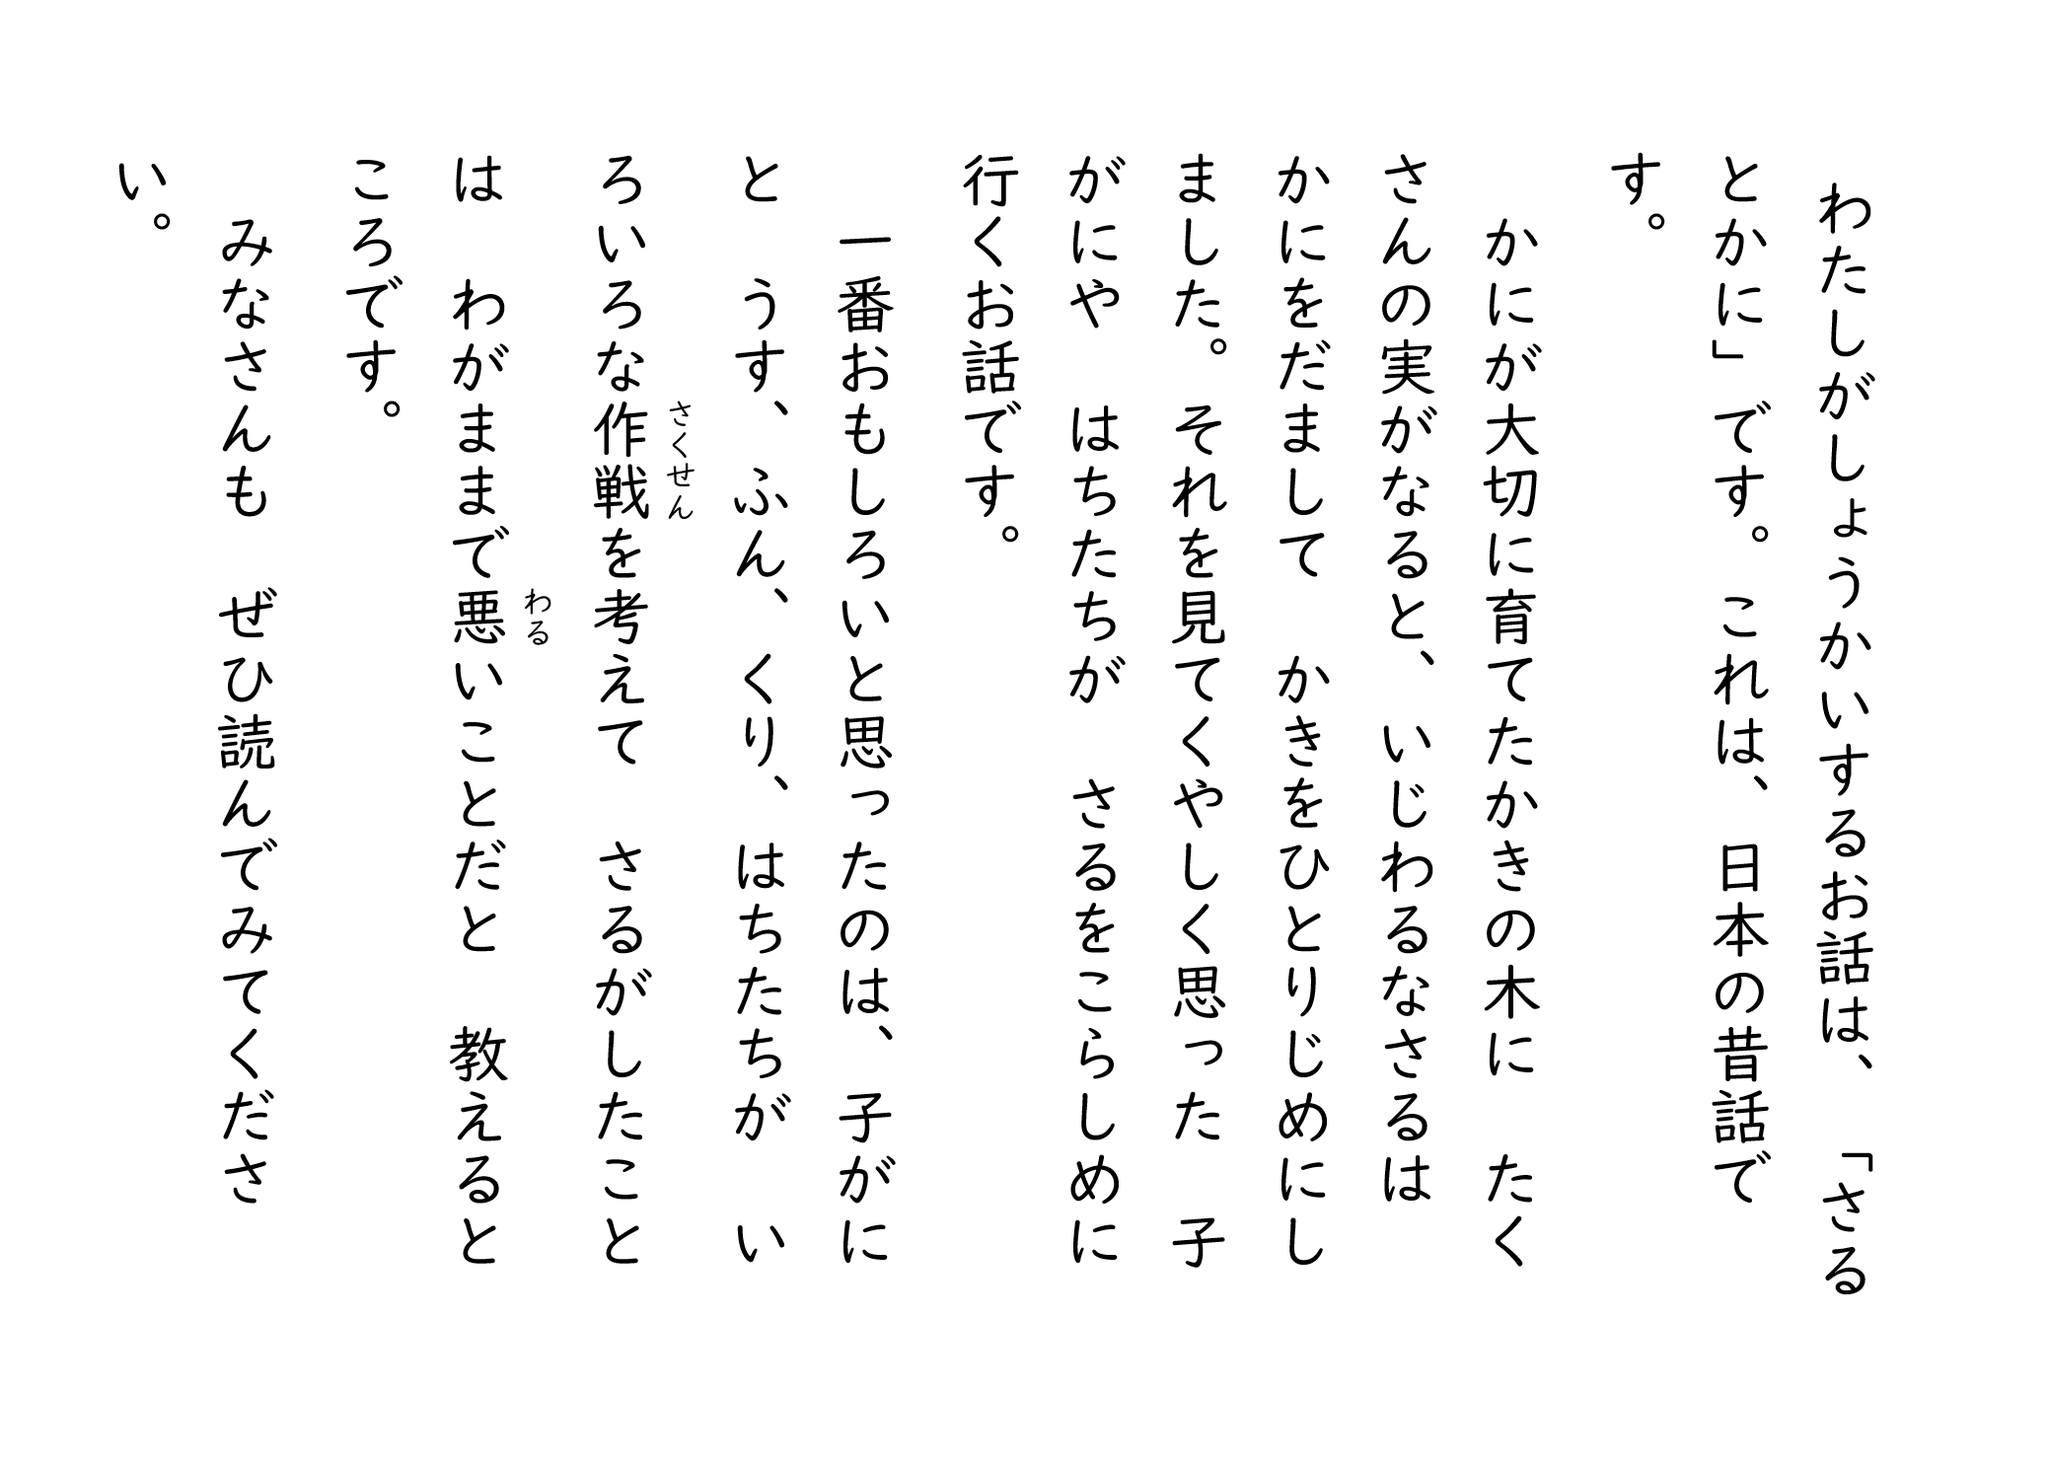 わたしがしょうかいするお話は、「さる
とかに」です。これは、日本の昔話で
す。
　かにが大切に育てたかきの木に　たく
さんの実がなると、いじわるなさるは
かにをだまして　かきをひとりじめにし
ました。それを見てくやしく思った　子
がにや　はちたちが　さるをこらしめに
行くお話です。
　一番おもしろいと思ったのは、子がに
と　うす、ふん、くり、はちたちが　い
さくせん
ろいろな作戦を考えて　さるがしたこと
わる
は　わがままで悪いことだと　教えると
ころです。
　みなさんも　ぜひ読んでみてくださ
い。